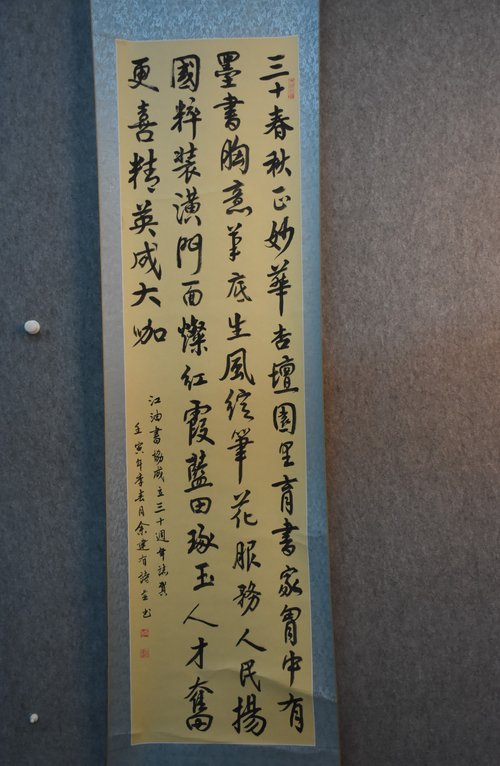 三十春秋正妙華杏壇園里育書家胃中有
墨書胸意筆底生風綻筆花服務人民揚
國粹裝潢門面燦紅霞藍田琢玉人才奮
更喜精英成大咖
江油書協成立三十週年誌賀
壬寅年季春月余建有詩並書